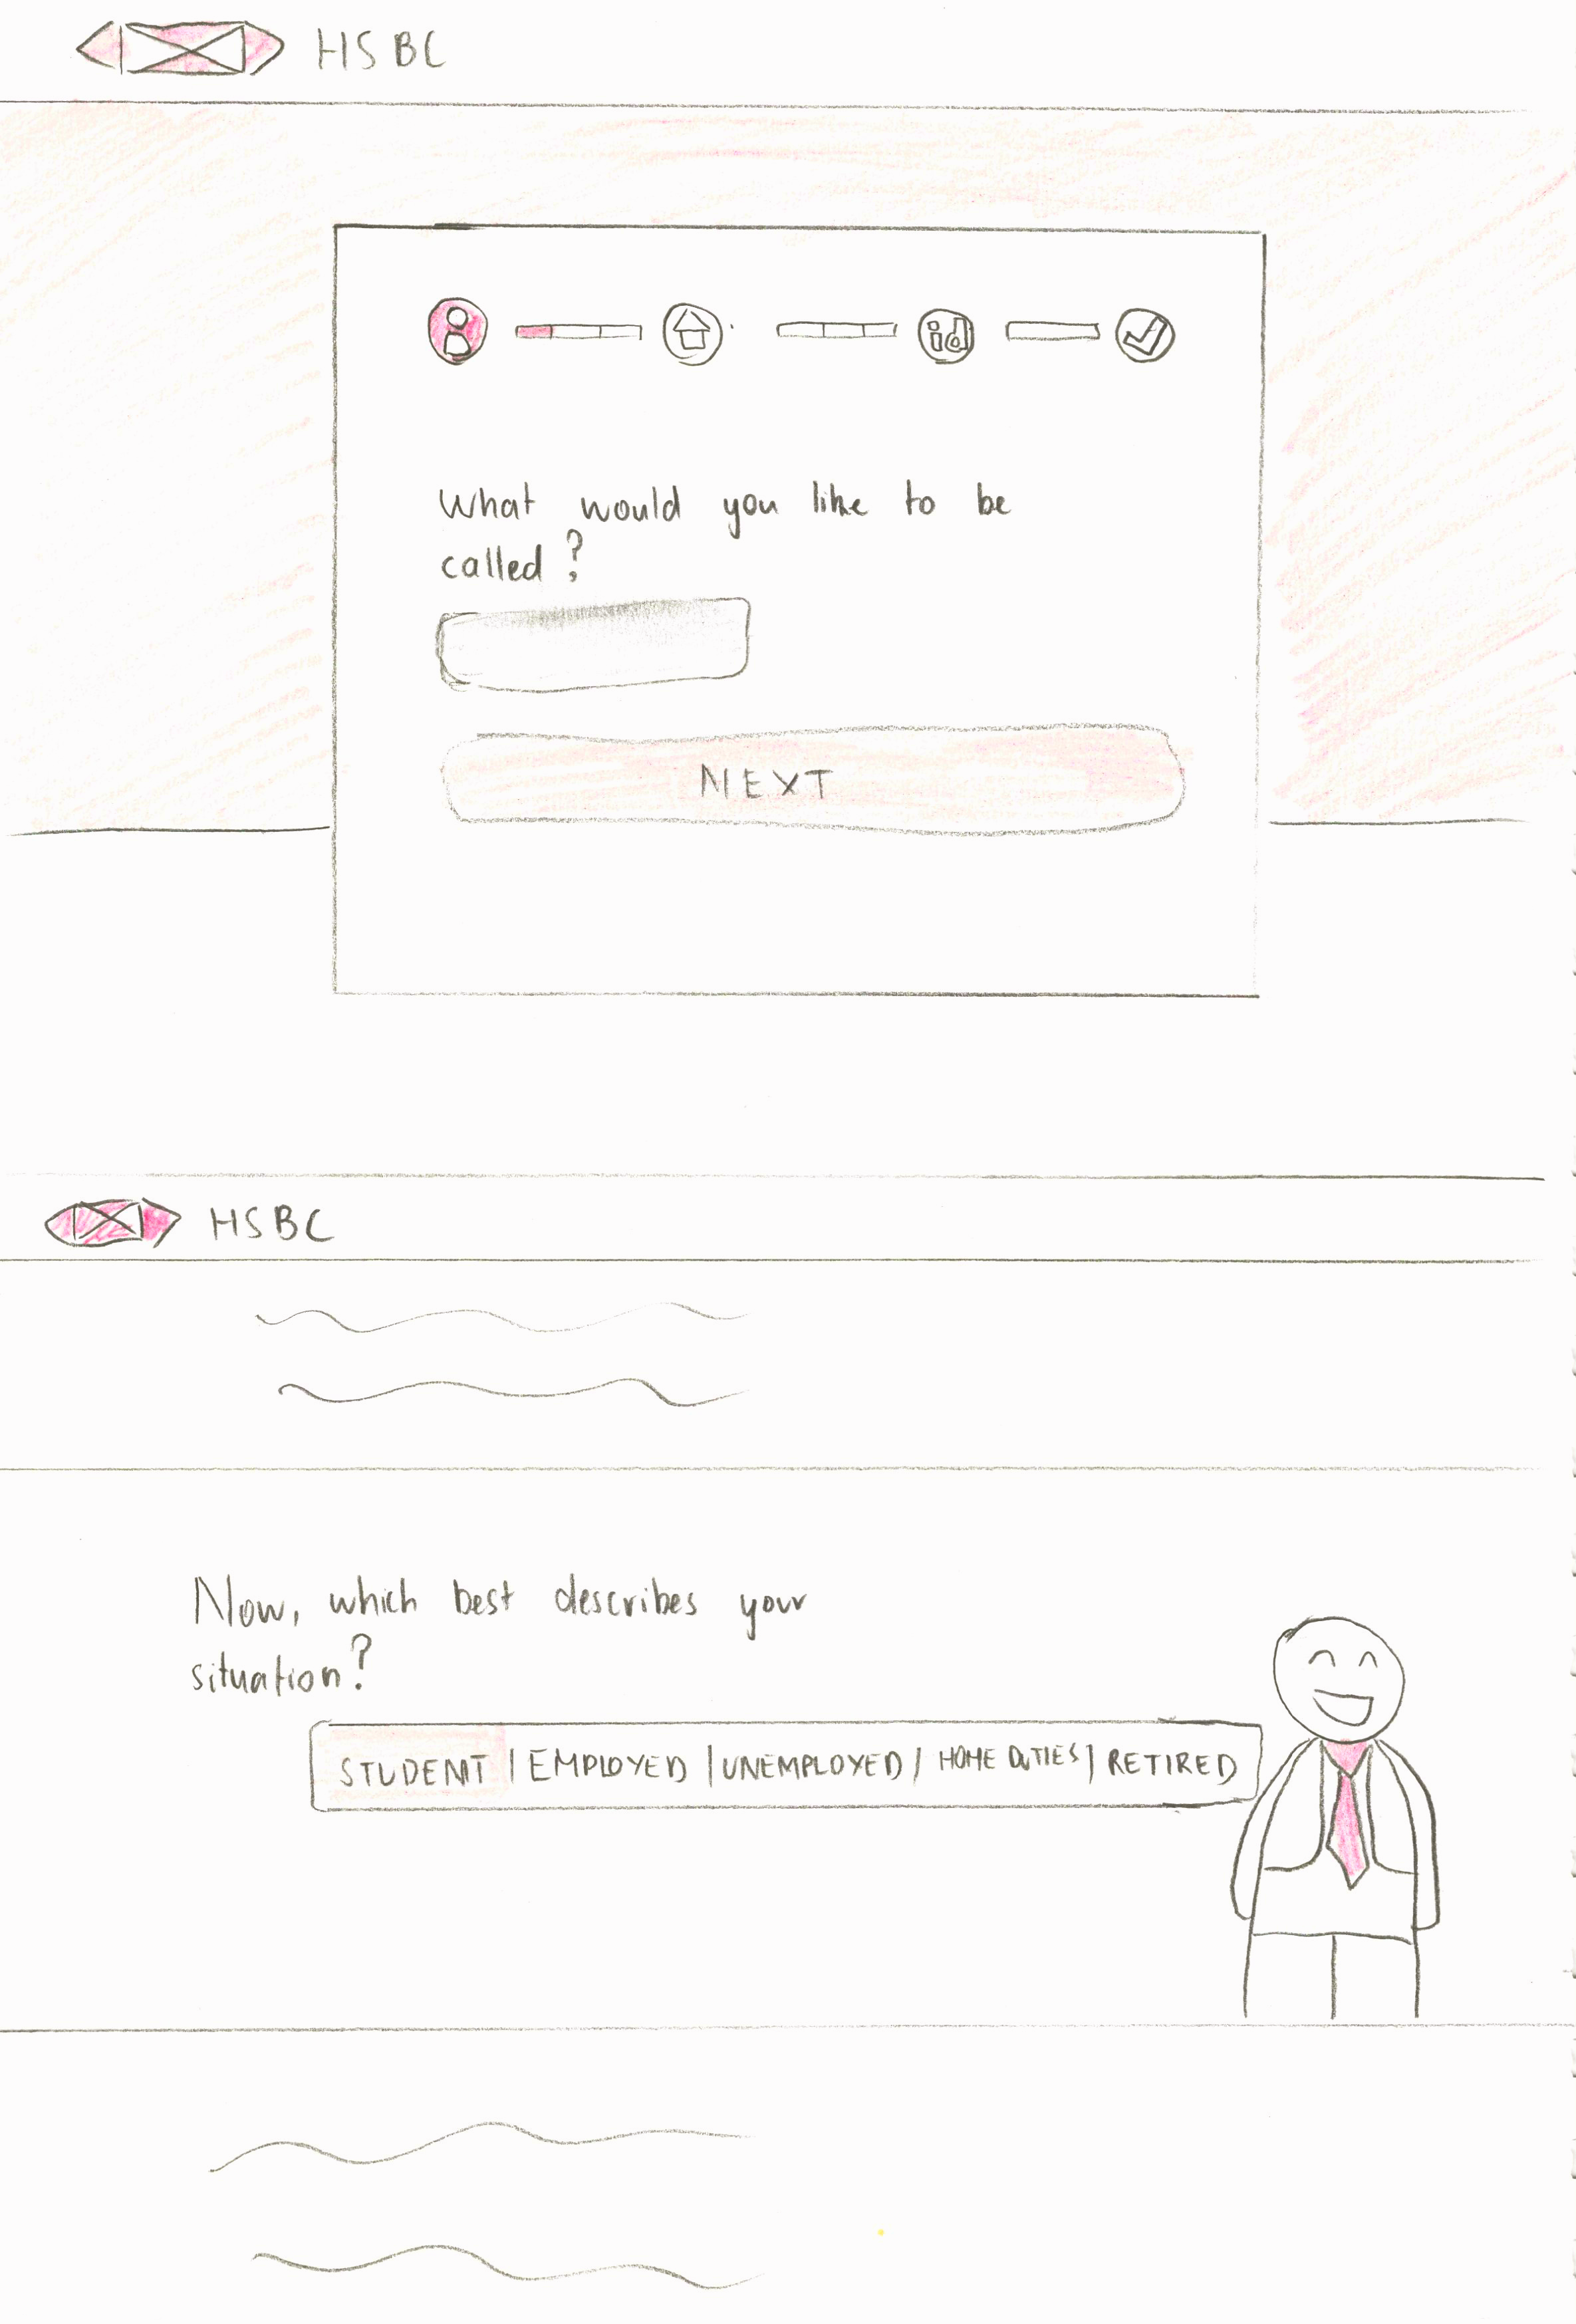 HSBC
id
What would you like to be
called?
NEXT
HSBC
Now, which best describes your
situation?
STUDENT | EMPLOYED | UNEMPLOYED | HOME DUTIES | RETIRED